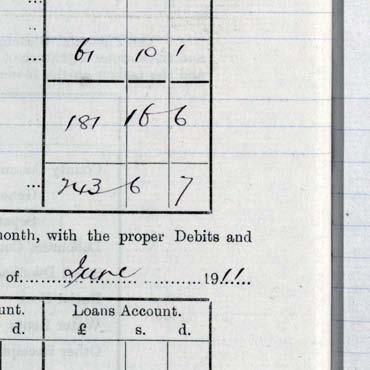 ... 61 10 1
181 16 6
... 243 6 7
month, with the proper Debits and
of.....June.....1911....
unt. Loans Account.
d. £ s. d.